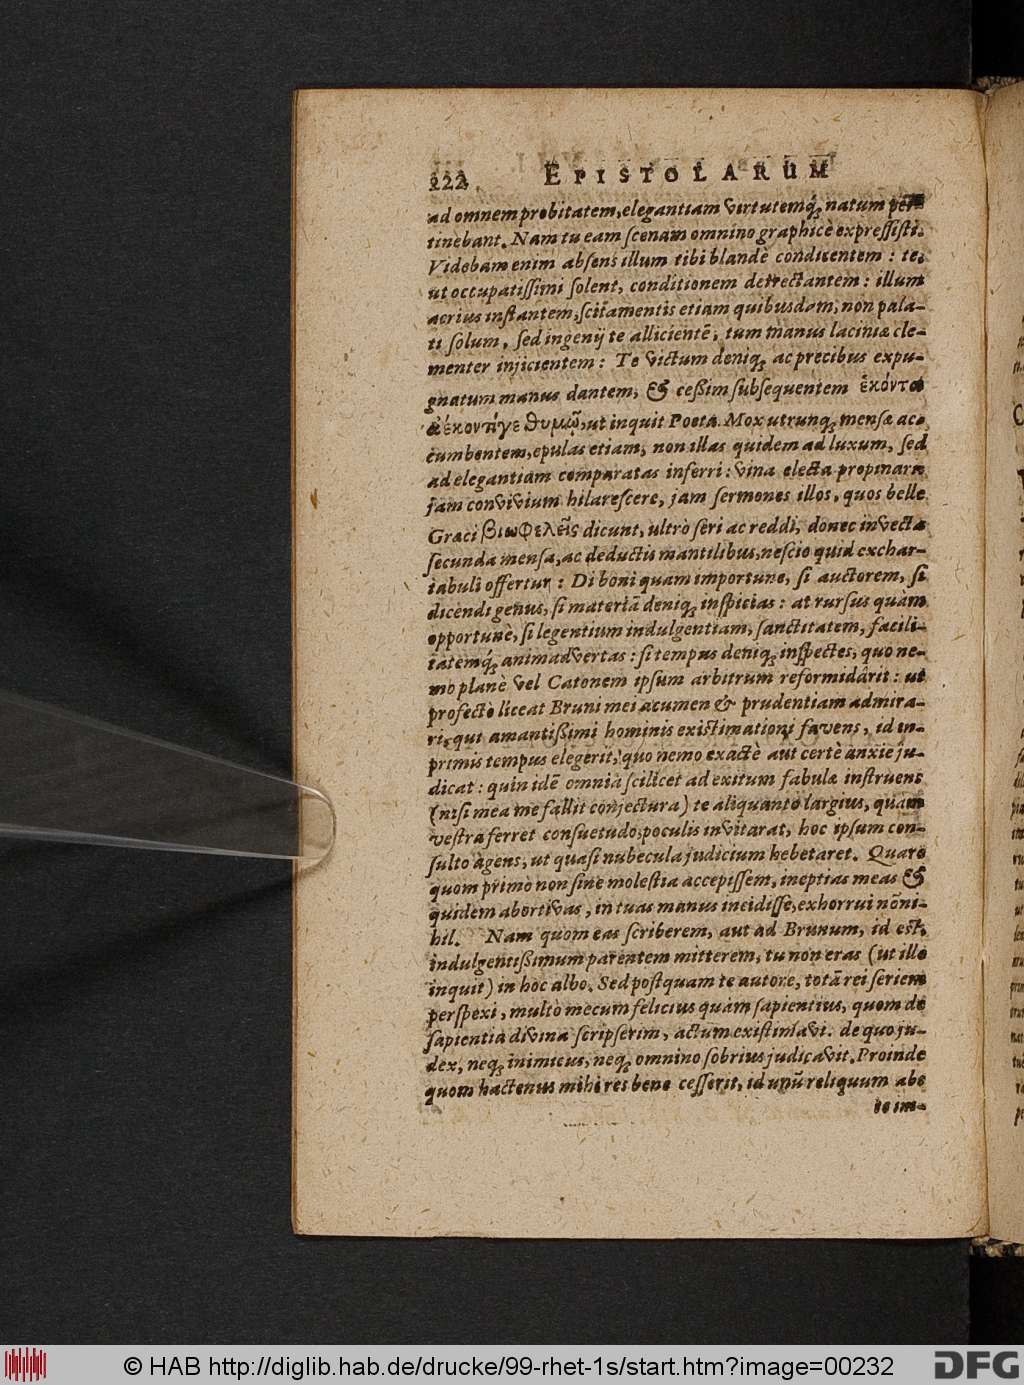 222 EPISTOLARUM
ad omnem probitatem, elegantiam virtutemq́; natum per-
tinebant. Nam tu eam scenam omnino graphicè expressisti.
Videbam enim absens illum tibi blandè conditentem: te,
ut occupatissimi solent, conditionem detrectantem: illum
acrius instantem, scitamentis etiam quibusdam, non pala-
ti sòlum, sed ingenij te allicientē, tum manus laciniæ cle-
menter injicientem: Te victum deniq; ac precibus expu-
gnatum manus dantem, & ceßim subsequentem ἑκόντα
ἀέκοντίγε θυμῷ, ut inquit Poeta. Mox utrunq; mensæ ac-
cumbentem, epulas etiam, non illas quidem ad luxum, sed
ad elegantiam comparatas inferri: vina electa propinare
jam convivium hilarescere, jam sermones illos, quos belle
Græci βιωφελεῖς dicunt, ultrò seri ac reddi, donec invecta
secunda mensa, ac deductis mantilibus, nescio quid exchar-
tabuli offertur: Di boni quam importune, si auctorem, si
dicendi genus, si materiā deniq; inspicias: at rursus quàm
opportunè, si legentium indulgentiam, sanctitatem, facili-
tatemq́; animadvertas: si tempus deniq; inspectes, quo ne-
mo planè vel Catonem ipsum arbitrum reformidârit: ut
profectò liceat Bruni mei acumen & prudentiam admira-
ri, qui amantißimi hominis existimationi favens, id in-
primis tempus elegerit, quo nemo exactè aut certè anxie ju-
dicat: quin idē omnia scilicet ad exitum fabulæ instruens
(nisi mea me fallit conjectura) te aliquanto largius, quàm
vestra ferret consuetudo, poculis invitarat, hoc ipsum con-
sulto agens, ut quasi nubecula judicium hebetaret. Quare
quom primo non sine molestia accepissem, ineptias meas &
quidem abortivas, in tuas manus incidisse, exhorrui nōni-
hil. Nam quom eas scriberem, aut ad Brunum, id est,
indulgentißimum parentem mitterem, tu non eras (ut ille
inquit) in hoc albo. Sed postquam te autore, totā rei seriem
perspexi, multò mecum felicius quàm sapientius, quom de
sapientia divina scripserim, actum existimavi. de quo ju-
dex, neq; inimicus, neq; omnino sobrius judicavit. Proinde
quom hactenus mihi res bene cesserit, id unū reliquum abs
te im-
© HAB http://diglib.hab.de/drucke/99-rhet-1s/start.htm?image=00232
DFG